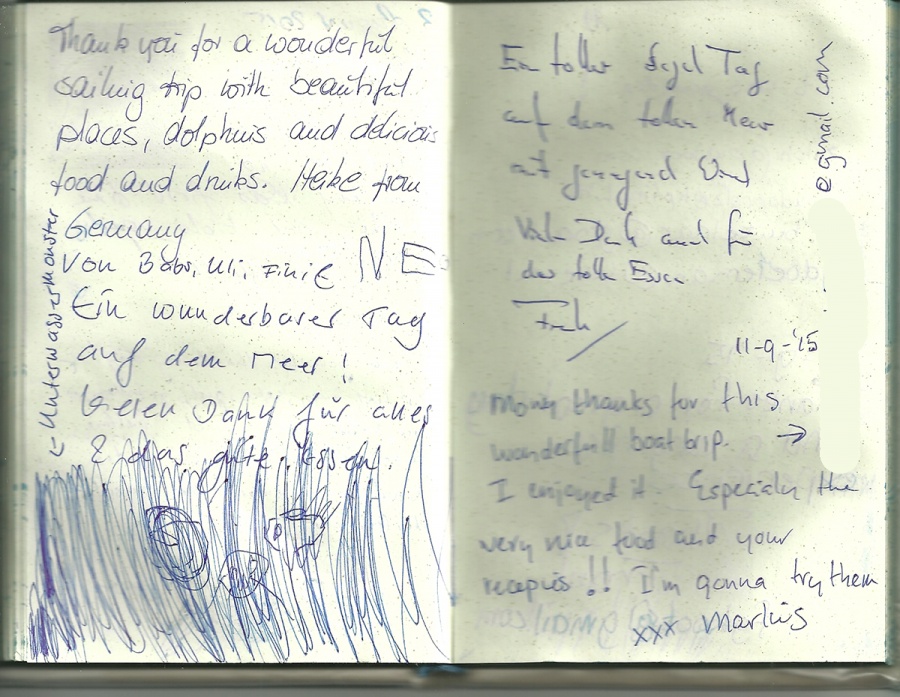 Thank you for a wonderful
sailing trip with beautiful
places, dolphins and delicious
food and drinks. Heike from
Germany
Von Babs, Uli, Finie NE
Ein wunderbarer Tag
auf dem Meer!
Vielen Dank für alles
& das gute Essen.
← Unterwassermonster
Ein toller Segel Tag
auf dem tollen Meer
mit genügend Wind
Vielen Dank auch für
das tolle Essen
@gmail.com
11-9-'15
Many thanks for this
wonderfull boat trip. →
I enjoyed it. Especialy the
very nice food and your
recepies !! I'm gonna try them
xxx Marlùs